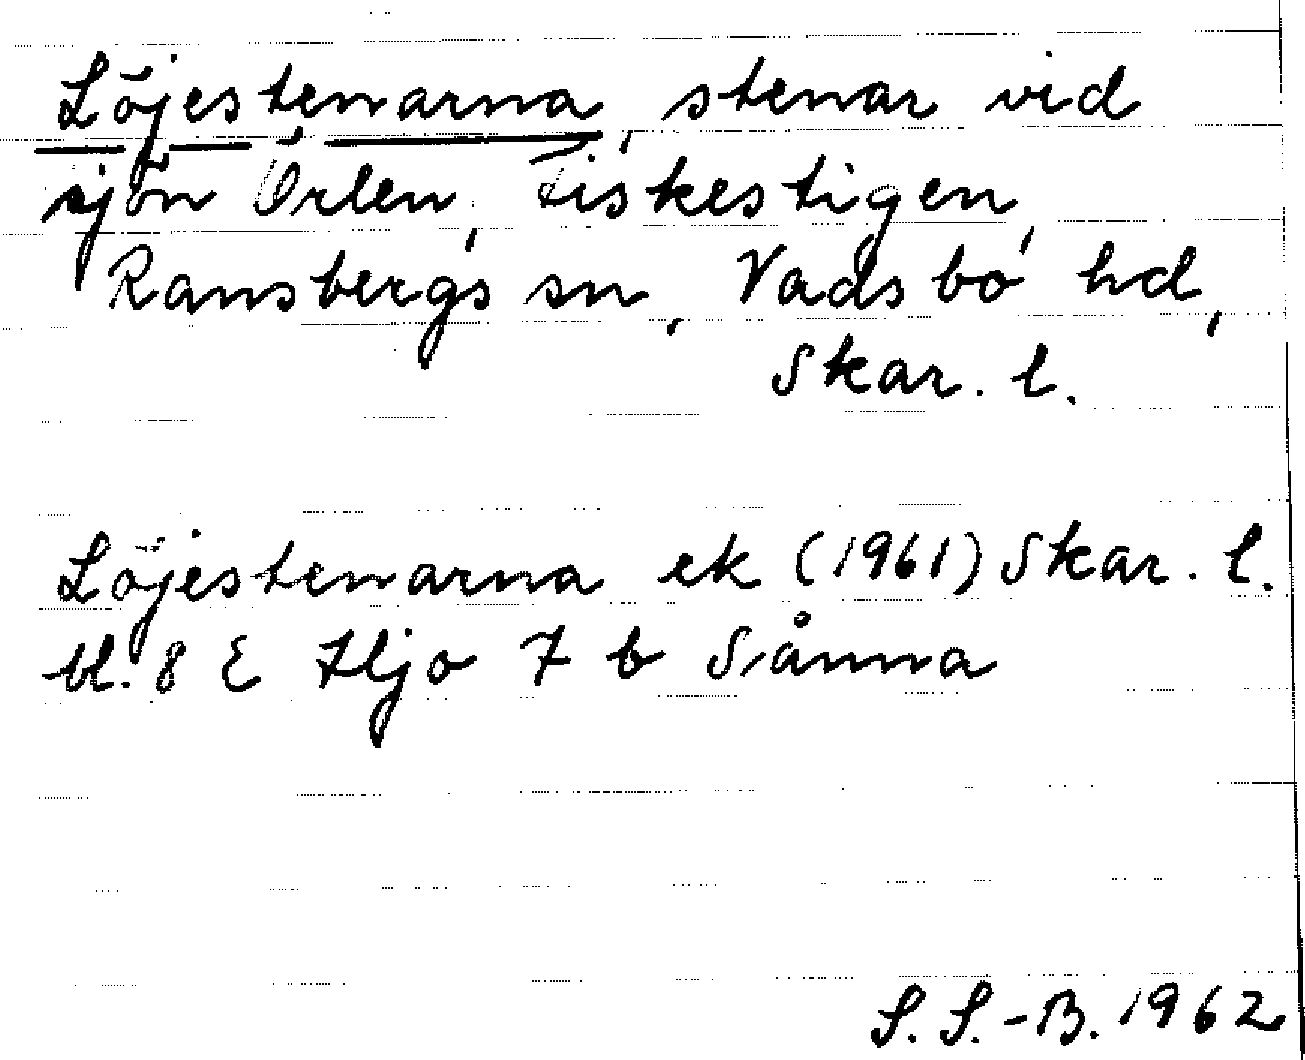 Löjestenarna, stenar vid
sjön Örlen, Fiskestigen,
Ransbergs sn, Vadsbo hd,
Skar. l.
Löjestenarna ek (1961) Skar. l.
bl. 8 E Hjo 7 b Sånna
S. S.-B. 1962